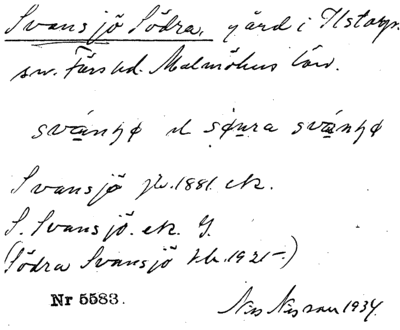 Svansjö Södra, gård i Ilstorp.
sn. Färs hd. Malmöhus län.
svánʃø el sǿḍra svánʃø
Svansjö jb. 1881. ek.
S. Svansjö. ek. G.
(Södra Svansjö kb. 1921-.)
Nr 5583.
Nils Nilsson 1934.